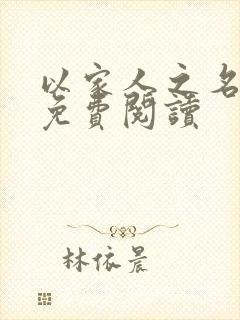 以家人之名
免費閱讀
林依晨